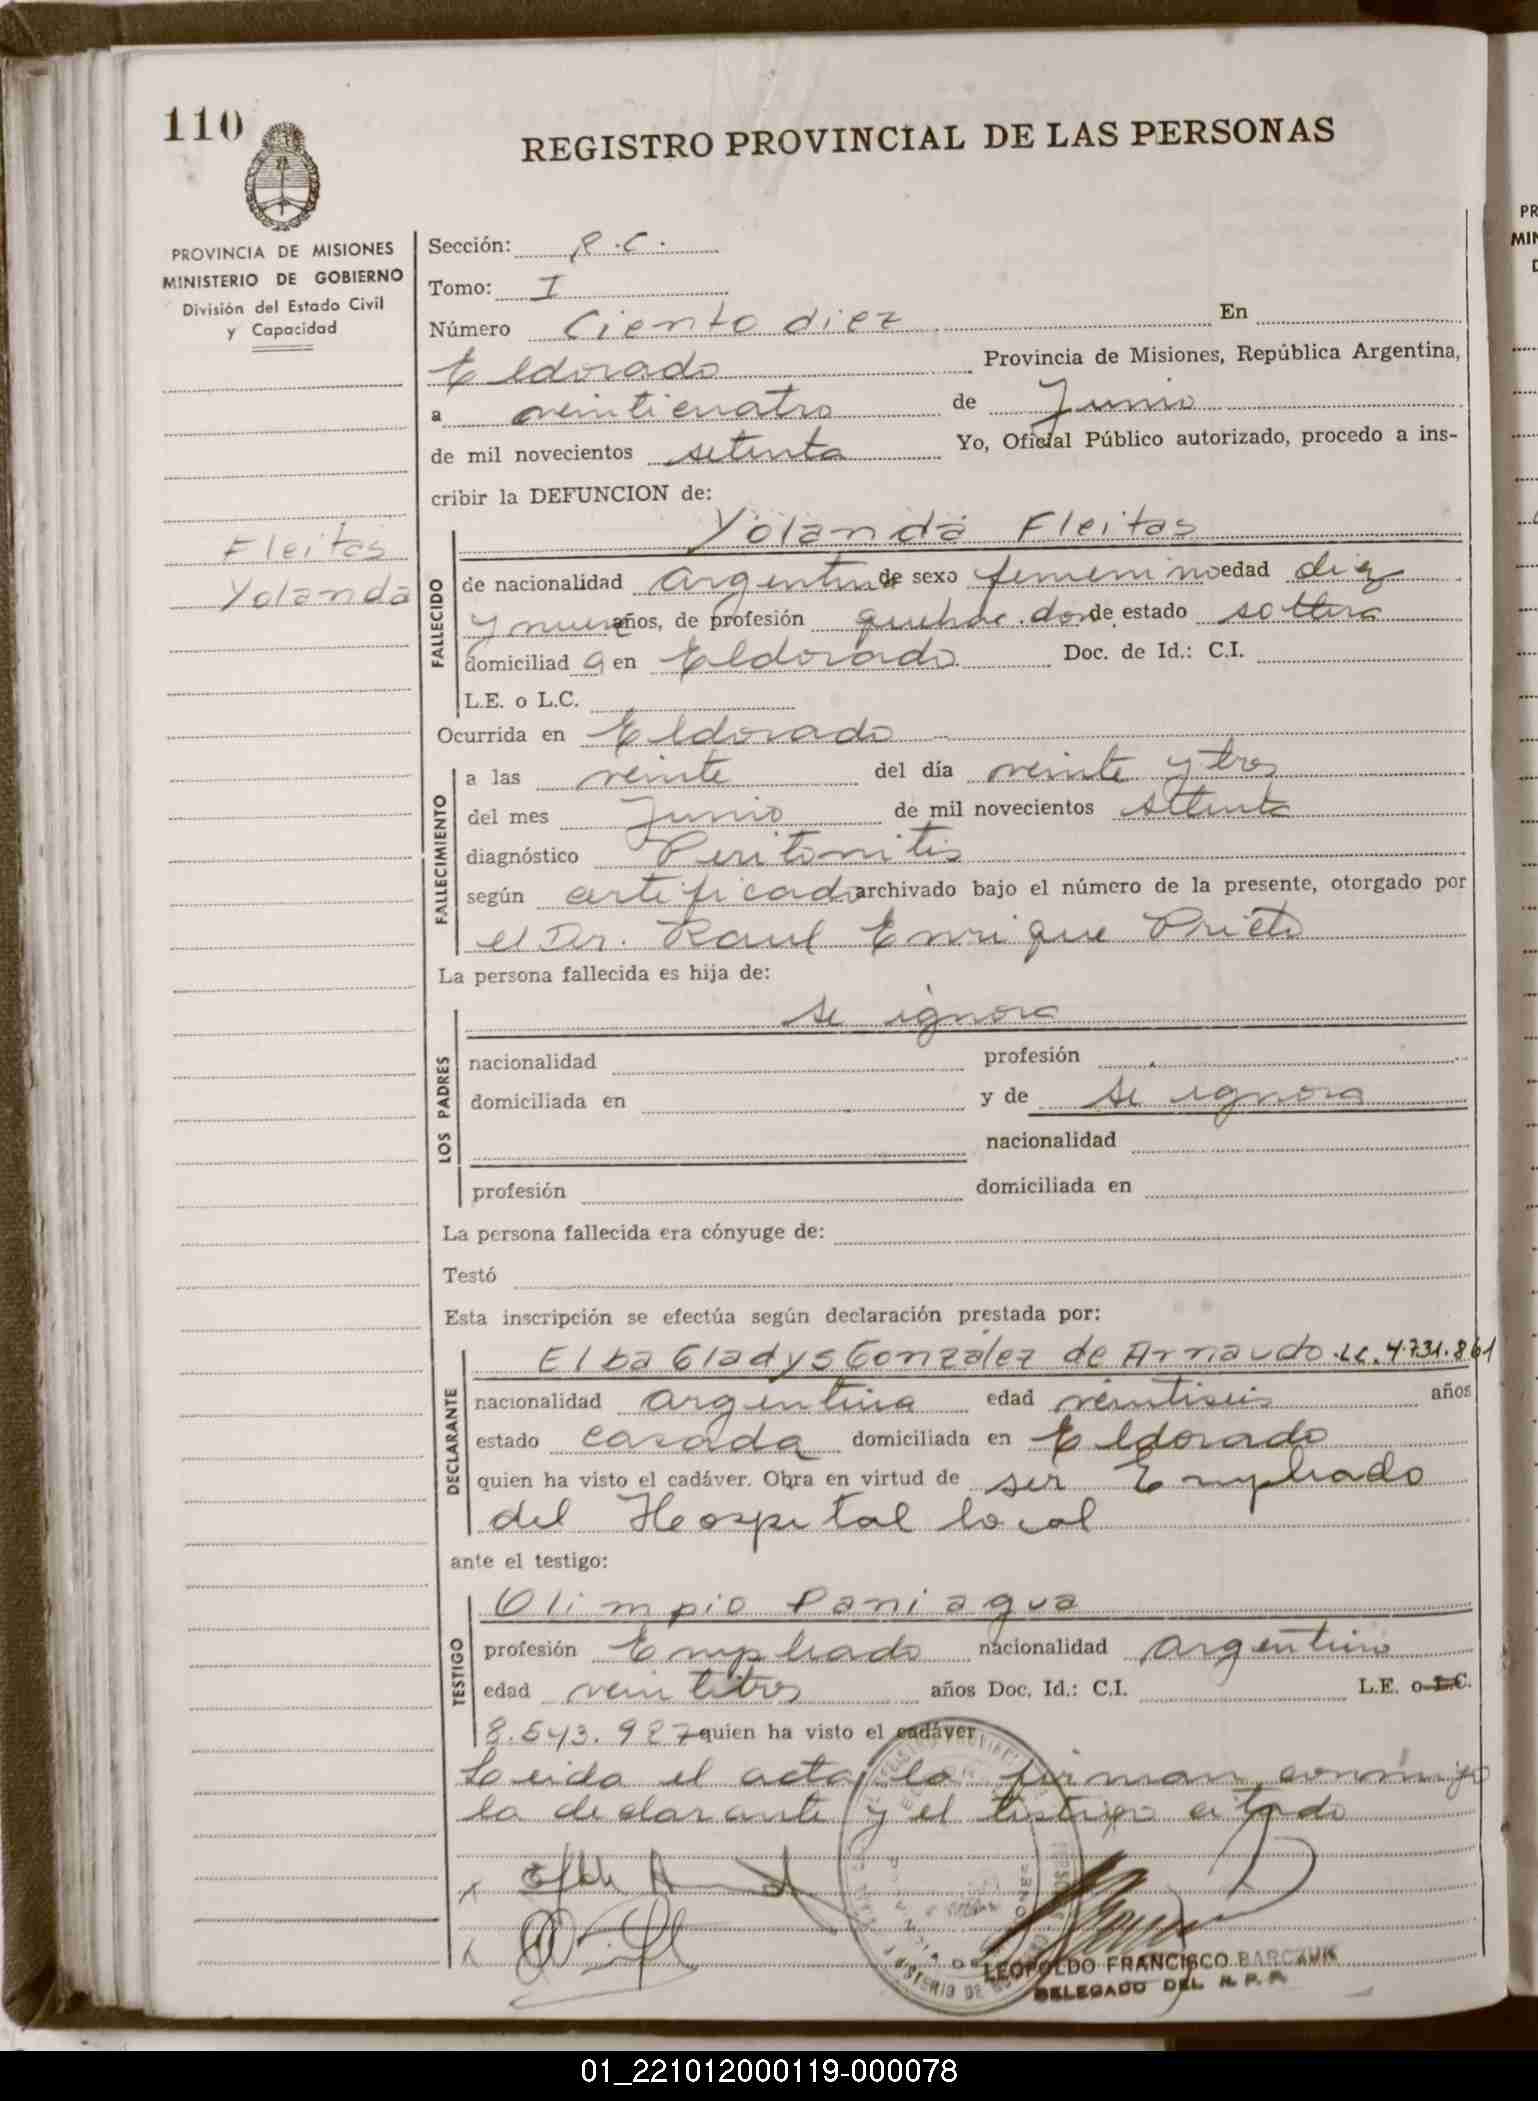 110
REGISTRO PROVINCIAL DE LAS PERSONAS
PROVINCIA DE MISIONES
MINISTERIO DE GOBIERNO
División del Estado Civil
y Capacidad
Fleitas
Yolanda
Sección: R.C.
Tomo: I
Número Ciento diez En
Eldorado Provincia de Misiones, República Argentina,
a veinticuatro de Junio
de mil novecientos setenta Yo, Oficial Público autorizado, procedo a ins-
cribir la DEFUNCION de:
FALLECIDO
Yolanda Fleitas
de nacionalidad argentina de sexo femenino edad diez
y nueve años, de profesión quehac. dom. de estado soltera
domiciliad a en Eldorado Doc. de Id.: C.I.
L.E. o L.C.
Ocurrida en Eldorado
FALLECIMIENTO
a las veinte del día veinte y tres
del mes Junio de mil novecientos setenta
diagnóstico Peritonitis
según certificado archivado bajo el número de la presente, otorgado por
el Dr. Raul Enrique Prieto
La persona fallecida es hija de:
LOS PADRES
se ignora
nacionalidad profesión
domiciliada en y de se ignora
nacionalidad
profesión domiciliada en
La persona fallecida era cónyuge de:
Testó
Esta inscripción se efectúa según declaración prestada por:
DECLARANTE
Elba Gladys González de Arnaudo L.C. 4.731.861
nacionalidad argentina edad veintiseis años
estado casada domiciliada en Eldorado
quien ha visto el cadáver. Obra en virtud de ser Empleado
del Hospital local
ante el testigo:
TESTIGO
Olimpio Paniagua
profesión Empleado nacionalidad argentino
edad veintitres años Doc. Id.: C.I. L.E. o L.C.
8.543.987 quien ha visto el cadáver
Leida el acta, la firman conmigo
la declarante y el testigo citado
LEOPOLDO FRANCISCO BARCZUK
DELEGADO DEL R. P. P.
PR
MIN
01_221012000119-000078